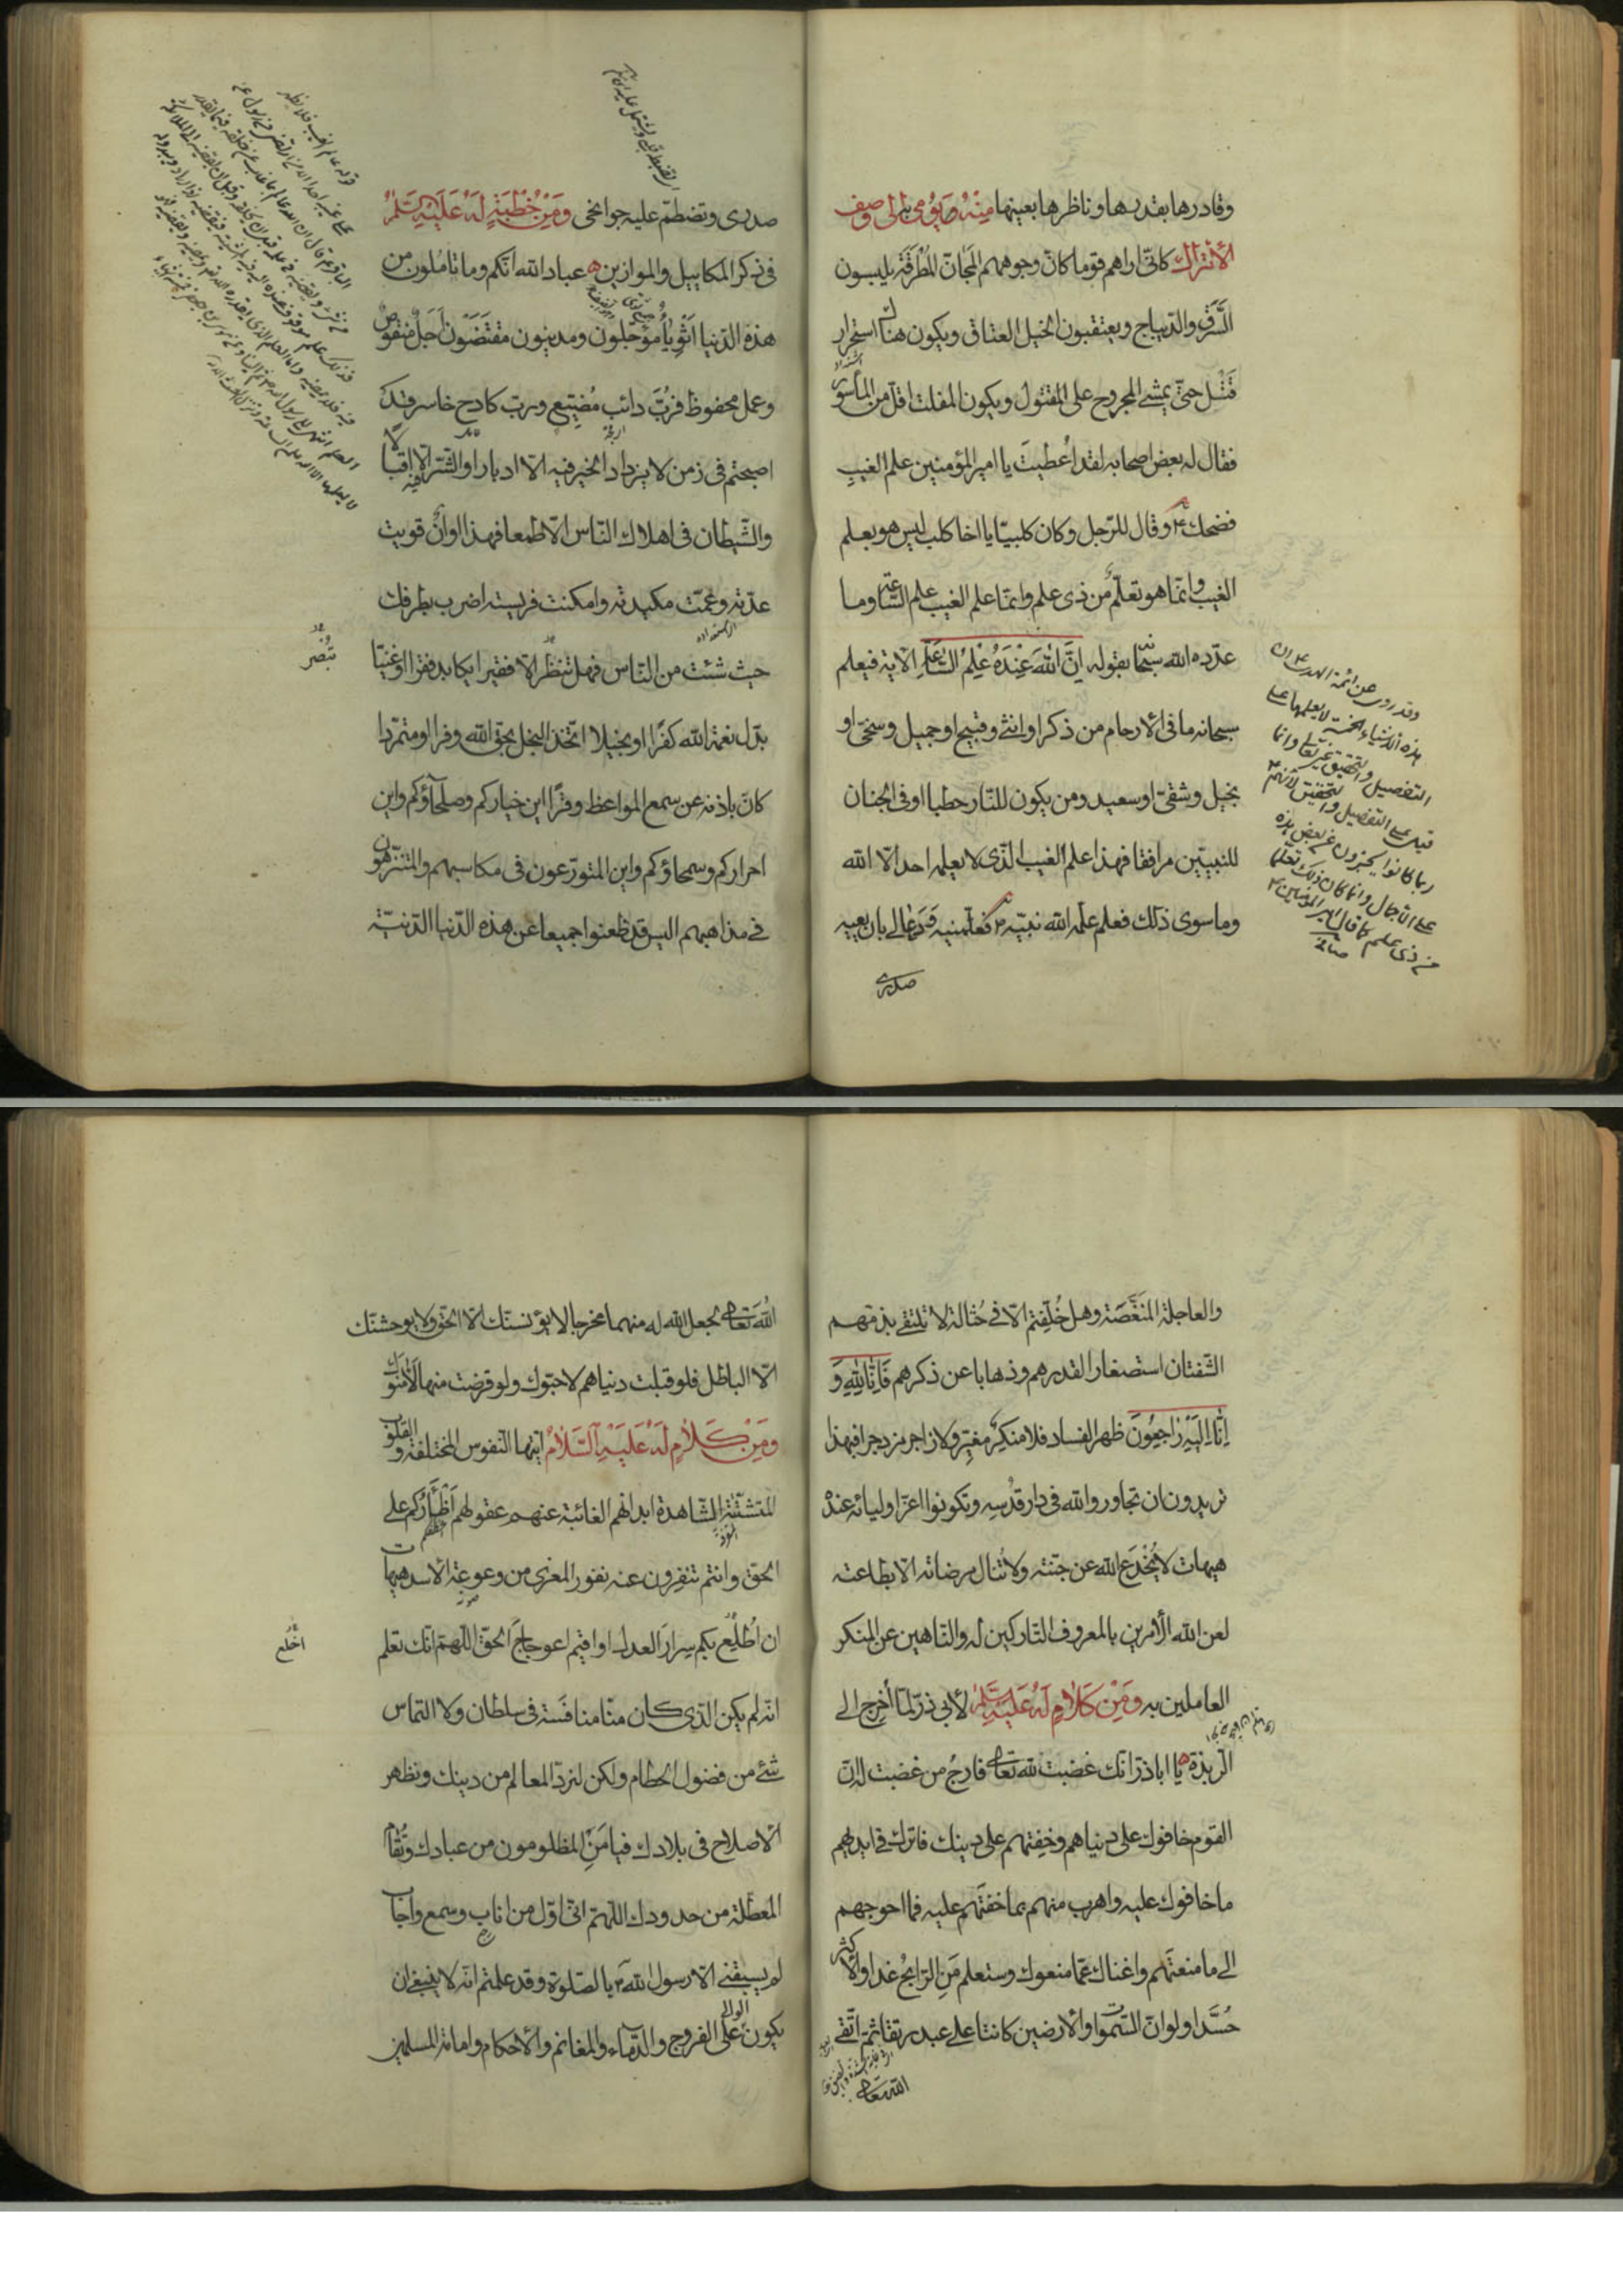 وقادرها بقدرها وناظرها بعينها مِنْهُ وَيُومِي بِهِ إلى وصف
الأتراك كانّى اراهم قوما كانّ وجوههم المَجانّ المُطْرَقَة يلبسون
السَّرَق والديباج ويعتقبون الخيل العتاق ويكون هناك استحرار
قَتْل حتّى يمشى المجروح على المقتول ويكون المفلت اقلّ من المأسور
فقال له بعض اصحابه لقد اُعطيتَ يا امير المؤمنين علم الغيبِ
فضحك ع وقال للرّجل وكان كلبيّا يا اخا كلب ليس هو بعلم
الغيب وانّما هو تعلّم من ذى علم وانّما علم الغيب علم السّاعة وما
عدّده الله سبحانه بقوله اِنَّ اللّهَ عِنْدَهُ عِلْمُ السّاعَةِ الاية فيعلم
سبحانه ما فى الارحام من ذكر او انثى وقبيح او جميل وسخىّ او
بخيل وشقىّ او سعيد ومن يكون للنّار حطبا او فى الجنان
للنبيّين مرافقا فهذا علم الغيب الّذى لا يعلمه احد الّا الله
وما سوى ذلك فعلم علّمه الله نبيّه ص فعلّمنيه ودعا لى بان يعيه
صدرى
وقد روى عن ائمة الهدى ع ان
هذه الاشياء الخمسة لا يعلمها على
التفصيل والتحقيق غيره تعالى وانما
قيد على التفصيل والتحقيق لانهم ع
ربما كانوا يخبرون عن بعض هذه
على الاجمال وانما كان ذلك تعلّما
من ذى علم كما قال امير المؤمنين ع
صافى
صدرى وتضطمّ عليه جوانحى وَمِنْ خُطْبَةٍ لَهُ عَلَيْهِ السَّلَمُ
فى ذكر المكاييل والموازين عباد الله انّكم وما تاملون من
هذه الدّنيا اَثْوِياءُ مؤجلون ومدينون مقتَضَوْن اَجَلٌ منقوص
وعمل محفوظ فرُبَّ دائب مُضيّع وربّ كادح خاسر وقد
اصبحتم فى زمن لا يزداد الخير فيه الّا ادبارا والشّر فيه الّا اقبالا
والشّيطان فى اهلاك النّاس الّا طمعا فهذا اوانٌ قويت
عدّته وعمّت مكيدته وامكنت فريسته اضرب بطرفك
حيث شئت من النّاس فهل تنظر الّا فقيرا يكابد فقرا او غنيّا
بدّل نعمة الله كفرًا او بخيلا اتّخذ البخل بحق الله وفرا او متمرّدا
كانّ باذنه عن سمع المواعظ وقرًا اين خياركم وصلحآؤكم واين
احراركم وسمحاؤكم واين المتورّعون فى مكاسبهم والمتنزّهون
فى مذاهبهم اليس قد ظعنوا جميعا عن هذه الدّنيا الدّنيّة
تبصر
والعاجلة المنَغَّصَة وهل خُلّفتم الّا فى حُثالة لا تلتقى بذمّهم
الشّفتان استصغارا لقدرهم وذهابا عن ذكرهم فَاِنّا لِلّهِ وَ
اِنّا اِلَيْهِ رَاجِعُونَ ظهر الفساد فلا منكِرٌ مغيّر ولا زاجر مزدجر افبهذا
تريدون ان تجاوروا الله فى دار قدْسِه وتكونوا اعزّ اوليائه عندهُ
هيهات لا يُخْدَع الله عن جنّته ولا تُنال مرضاته الّا بطاعته
لعن الله الآمرين بالمعروف التاركين له والناهين عن المنكر
العاملين به وَمِنْ كَلامٍ لَهُ عَلَيْهِ السَّلَمُ لأبى ذرّ لمّا اُخرج الى
الرّبذة يا اباذرّ انّك غضبت لله تعالى فارجُ من غضبت له انّ
القوم خافوك على دنياهم وخفتهم على دينك فاترك فى ايديهم
ما خافوك عليه واهرب منهم بما خفتَهم عليه فما احوجهم
الى ما منعتَهم واغناك عمّا منعوك وستعلم مَنِ الرّابحُ غدا والاكثر
حُسَّدا ولو انّ السّموات والارضين كانتا على عبد رتقا ثمّ اتّقى
اللّه تعالى
اللّهَ تعالى لجعل الله له منهما مخرجا لا يؤنسنّك الّا الحقّ ولا يوحشنّك
الّا الباطل فلو قبلت دنياهم لاحبّوك ولو قرضت منها لاَمَّنوك
وَمِنْ كَلامٍ لَهُ عَلَيْهِ السَّلامُ ايّتها النّفوس المختلفة والقلوب
المتشتّتة الشّاهدة ابدانهم الغائبة عنهم عقولهم اَظْأَرُكم على
الحق وانتم تنفِرون عنه نفور المعزى من وعوعة الاسد هيهات
ان اُطْلِعَ بكم سِرارَ العدل او اقيم اعوجاجَ الحقّ اللّهمّ انّك تعلم
انّه لم يكن الّذى كان منّا منافَسة فى سلطان ولا التماس
شئ من فضول الحطام ولكن لنردّ المعالم من دينك ونظهر
الاصلاح فى بلادك فيامَنَ المظلومون من عبادك وتُقام
المعطّلة من حدودك اللّهمّ انّى اوّل من اناب وسمع واجاب
لم يسبقنى الّا رسول الله ص بالصّلوة وقد علمتم انّه لا ينبغى ان
يكون الوالى على الفروج والدّماء والمغانم والاحكام وامامة المسلمين